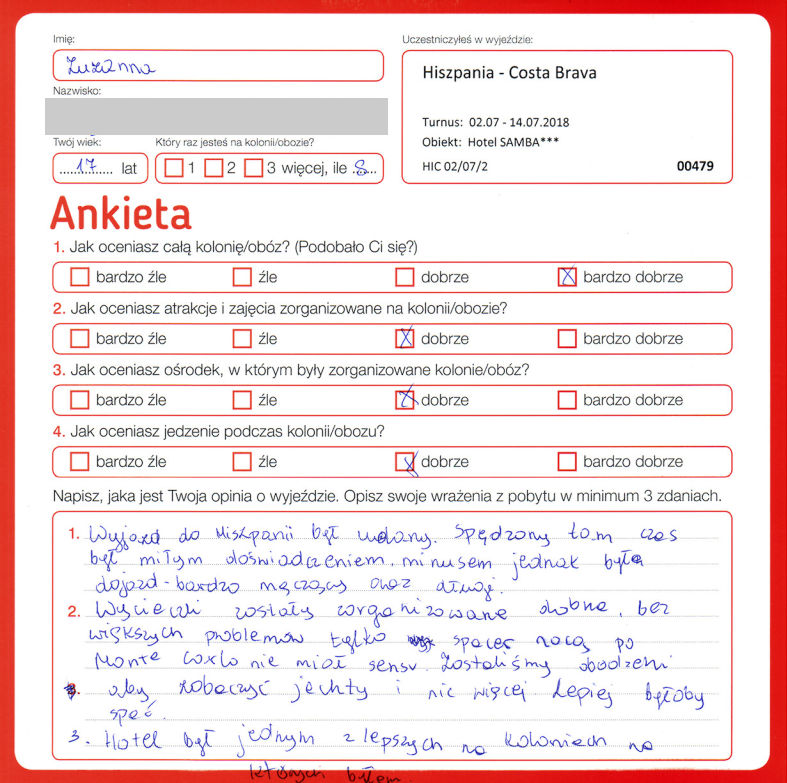 Imię:
Zuzanna
Nazwisko:
Twój wiek:
Który raz jesteś na kolonii/obozie?
17 lat
1 2 3 więcej, ile 8
Uczestniczyłeś w wyjeździe:
Hiszpania - Costa Brava
Turnus: 02.07 - 14.07.2018
Obiekt: Hotel SAMBA***
HIC 02/07/2 00479
Ankieta
1. Jak oceniasz całą kolonię/obóz? (Podobało Ci się?)
bardzo źle źle dobrze bardzo dobrze
2. Jak oceniasz atrakcje i zajęcia zorganizowane na kolonii/obozie?
bardzo źle źle dobrze bardzo dobrze
3. Jak oceniasz ośrodek, w którym były zorganizowane kolonie/obóz?
bardzo źle źle dobrze bardzo dobrze
4. Jak oceniasz jedzenie podczas kolonii/obozu?
bardzo źle źle dobrze bardzo dobrze
Napisz, jaka jest Twoja opinia o wyjeździe. Opisz swoje wrażenia z pobytu w minimum 3 zdaniach.
1. Wyjazd do Hiszpanii był udany. Spędzony tam czas
był miłym doświadczeniem, minusem jednak była
dojazd - bardzo męczący oraz długi.
2. Wycieczki zostały zorganizowane dobrze, bez
większych problemów tylko spacer nocą po
Monte Carlo nie miał sensu. Zostaliśmy obudzeni
3. aby zobaczyć jachty i nic więcej. Lepiej byłoby
spać.
3. Hotel był jednym z lepszych na koloniach na
których byłem.